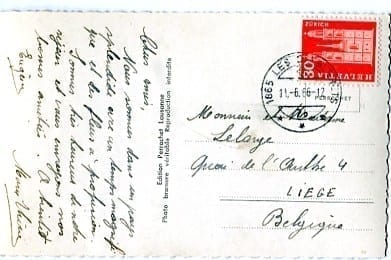 Chers amis,
Nous sommes dans un pays
splendide avec un temps magnifi
que et des fleurs à profusion.
Sommes très heureux de notre
séjour et vous envoyons nos
bonnes amitiés. A bientôt
Eugène
Edition Perrochet Lausanne
Photo bromure véritable Reproduction interdite
ZÜRICH
30
HELVETIA
1865 LES
11.-6.66-12
Monsieur et
Lelarge
Quai de l'Ourthe 4
LIEGE
Belgique